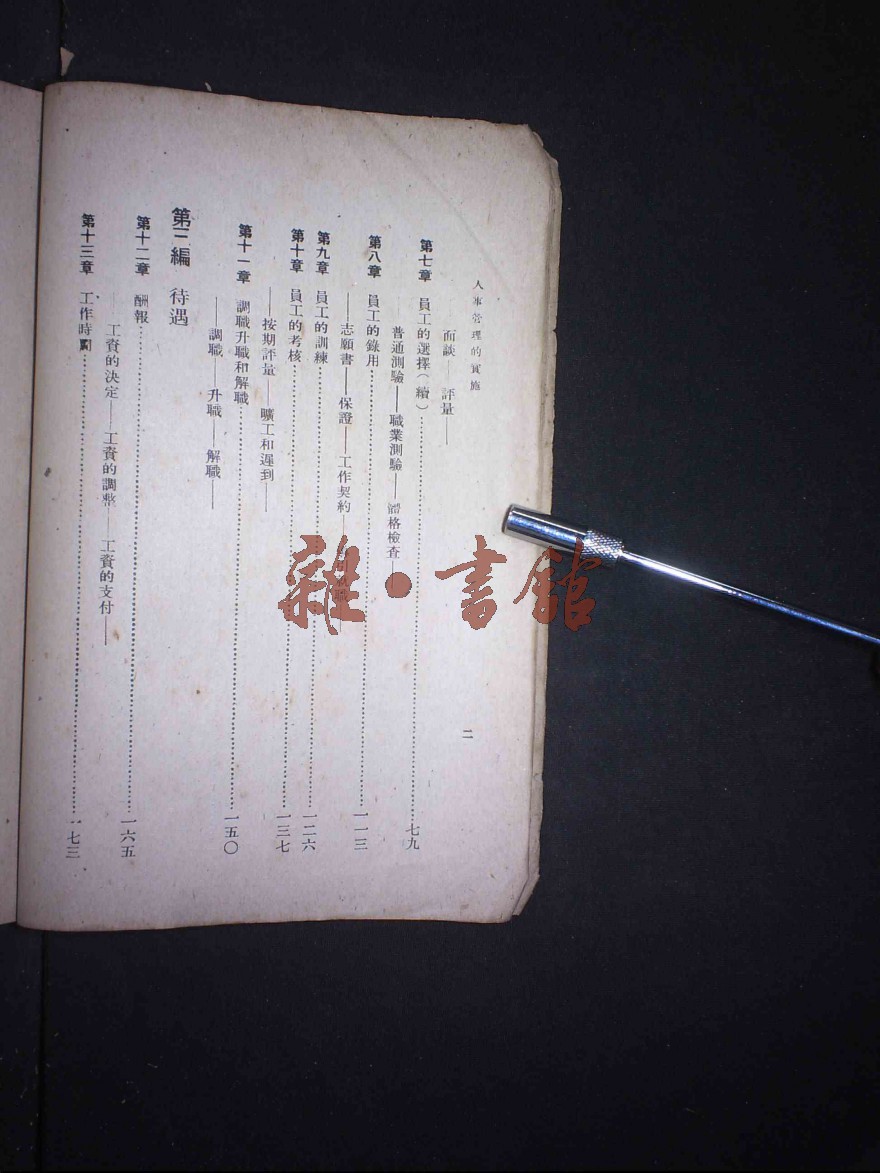 人事管理的實施
二
面談——評量——
第七章 員工的選擇(續)……七九
普通測驗——職業測驗——體格檢查——
第八章 員工的錄用……一一三
志願書——保證——工作契約——
第九章 員工的訓練……一二六
第十章 員工的考核……一三七
——按期評量——曠工和遲到——
第十一章 調職升職和解職……一五〇
——調職——升職——解職——
第三編 待遇
第十二章 酬報……一六五
——工資的決定——工資的調整——工資的支付——
第十三章 工作時間……一七三
雜·書館